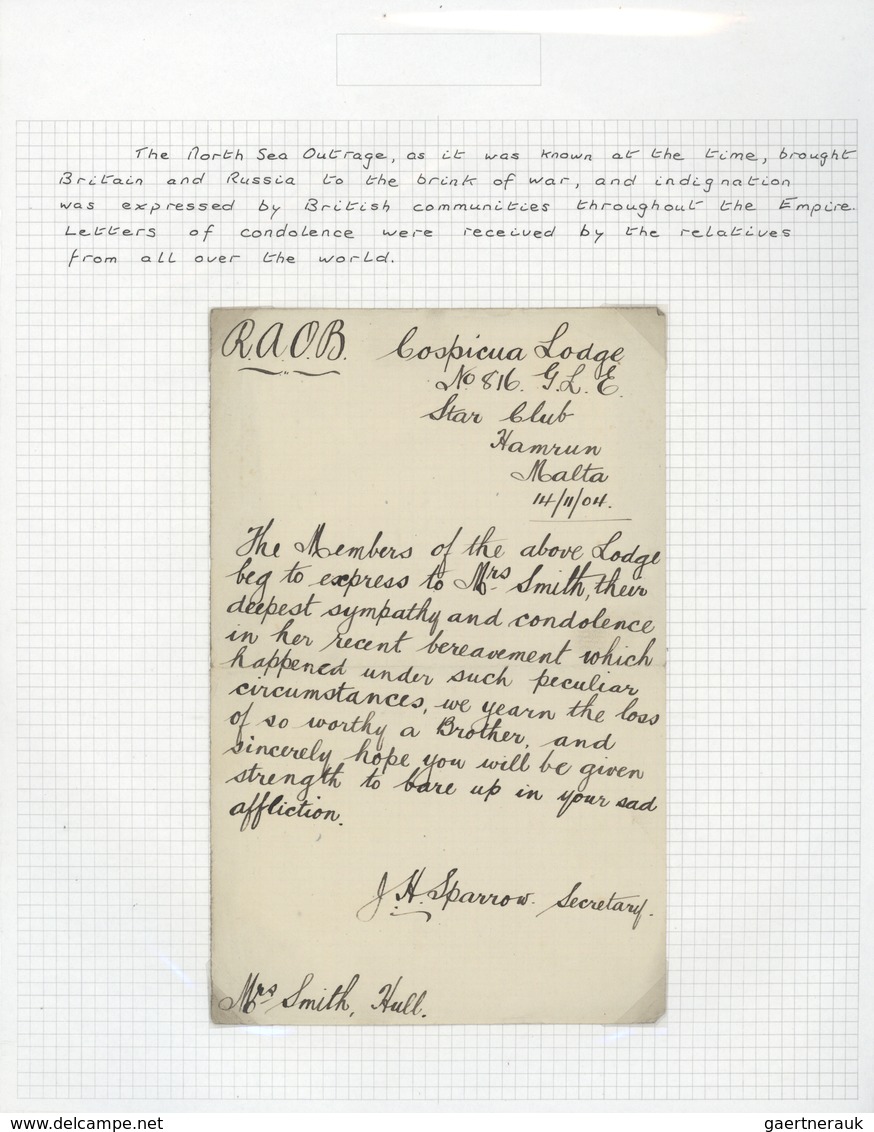 The North Sea Outrage, as it was known at the time, brought
Britain and Russia to the brink of war, and indignation
was expressed by British communities throughout the Empire.
Letters of condolence were received by the relatives
from all over the world.
R.A.O.B. Cospicua Lodge
No 816. G.L.E.
Star Club
Hamrun
Malta
14/11/04.
The Members of the above Lodge
beg to express to Mrs Smith, their
deepest sympathy and condolence
in her recent bereavement which
happened under such peculiar
circumstances, we yearn the loss
of so worthy a Brother, and
sincerely hope you will be given
strength to bare up in your sad
affliction.
J. H. Sparrow. Secretary.
Mrs Smith, Hull.
www.delcampe.net
gaertnerauk